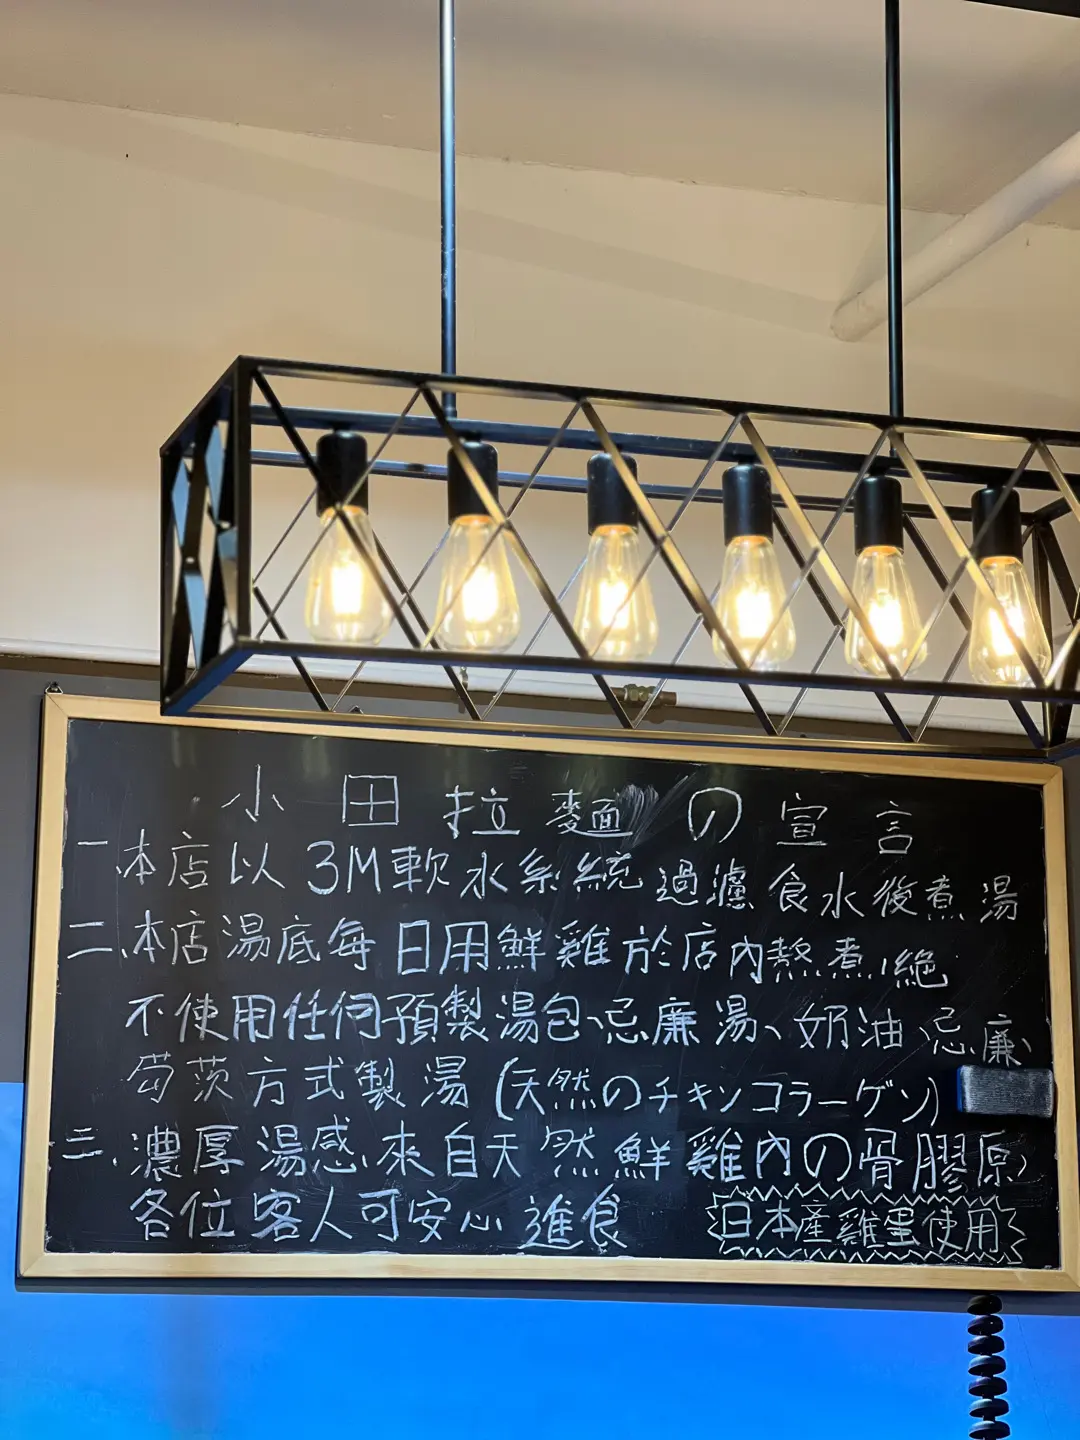 小田拉麵の宣言
一.本店以3M軟水系統過濾食水後煮湯
二、本店湯底每日用鮮雞於店內熬煮,絕
不使用任何預製湯包、忌廉湯、奶油、忌廉、
芶茨方式製湯(天然のチキンコラーゲン)
三、濃厚湯感,來自天然鮮雞內の骨膠原,
各位客人可安心進食
日本產雞蛋使用